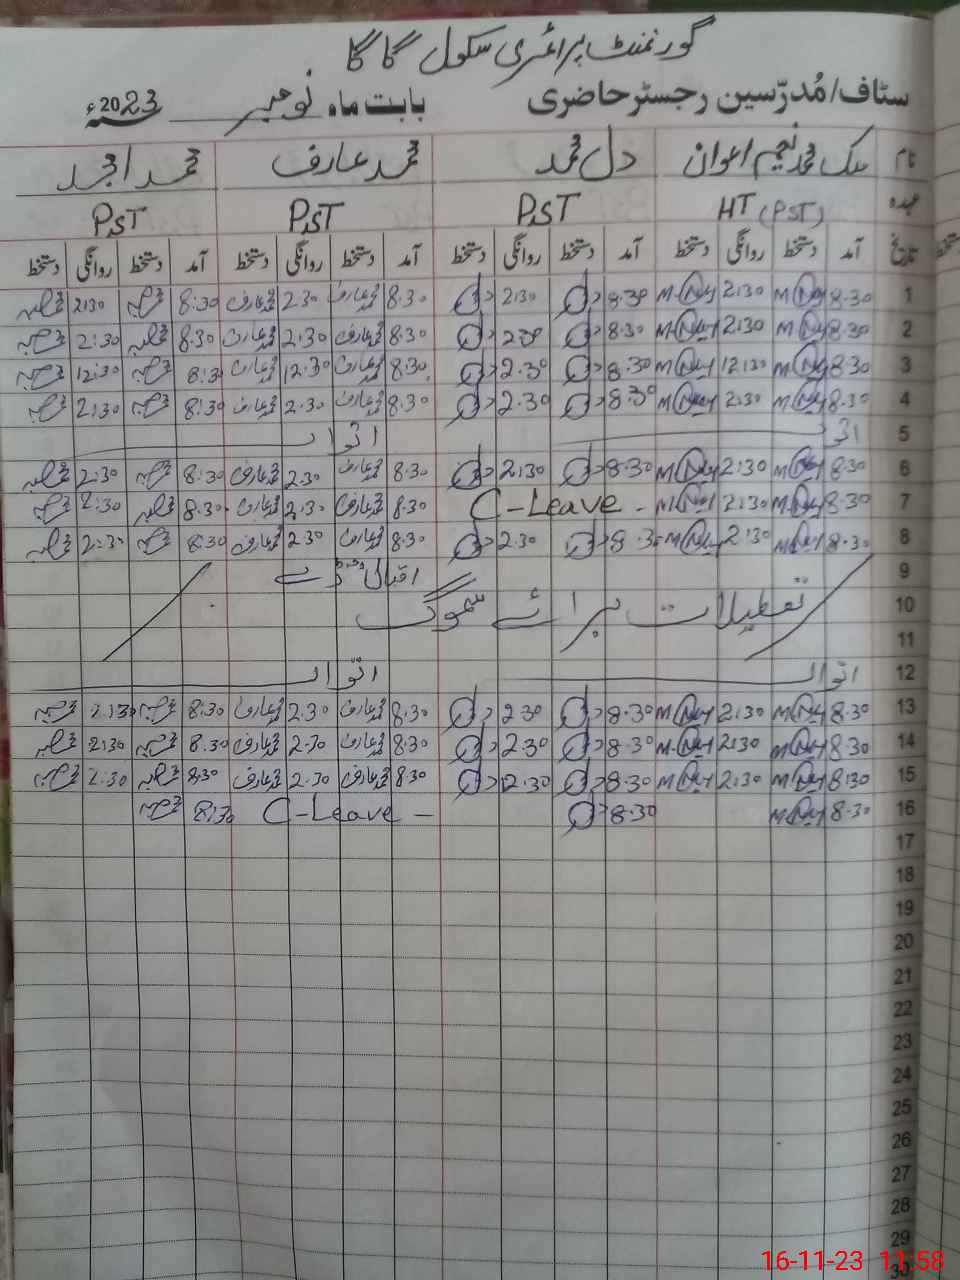 گورنمنٹ پرائمری سکول گاگا
سٹاف/مُدرّسین رجسٹر حاضری بابت ماہ نومبر 2023ء
نام ملک محمد نعیم اعوان دل محمد محمد عارف محمد امجد
عہدہ HT (PST) PST PST PST
تاریخ آمد دستخط روانگی دستخط آمد دستخط روانگی دستخط آمد دستخط روانگی دستخط آمد دستخط روانگی دستخط
1 8:30 2:30 8:30 2:30 8.30 محمد عارف 2.30 محمد عارف 8:30 2:30
2 8.30 2:30 8.30 2.30 8.30 محمد عارف 2.30 محمد عارف 8.30 2:30
3 8.30 12:30 8.30 2.30 8.30 محمد عارف 12.30 محمد عارف 8:30 12:30
4 8.30 2:30 8.30 2.30 8.30 محمد عارف 2.30 محمد عارف 8:30 2:30
5 اتوار اتوار
6 8:30 2:30 8.30 2:30 8.30 محمد عارف 2.30 محمد عارف 8:30 2:30
7 8.30 2:30 C-Leave 8.30 محمد عارف 2.30 محمد عارف 8.30 2:30
8 8.30 2:30 8.30 2.30 8.30 محمد عارف 2.30 محمد عارف 8:30 2:30
9 اقبال ڈے
10 تعطیلات برائے سموگ
11
12 اتوار اتوار
13 8.30 2:30 8.30 2.30 8.30 محمد عارف 2.30 محمد عارف 8.30 2:30
14 8.30 2:30 8.30 2.30 8.30 محمد عارف 2.30 محمد عارف 8.30 2:30
15 8:30 2:30 8.30 2.30 8.30 محمد عارف 2.30 محمد عارف 8:30 2:30
16 8.30 8.30 C-Leave 8:30
17
18
19
20
21
22
23
24
25
26
27
28
29
30
16-11-23 11:58